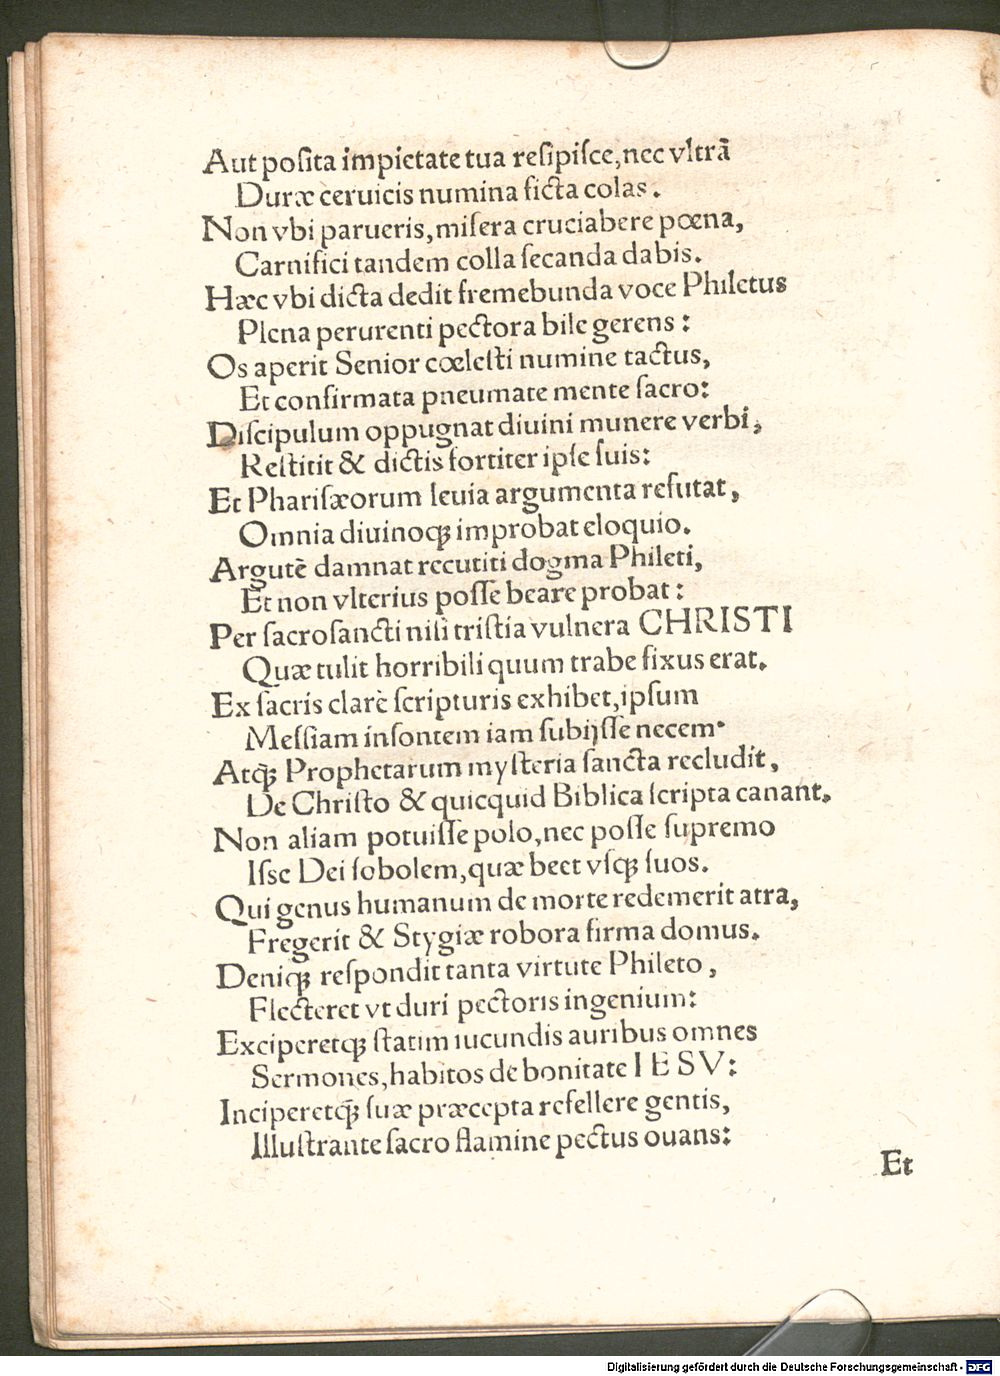 Aut poſita impietate tua reſipiſce,nec vltrà
Duræ ceruicis numina ficta colas.
Non vbi parueris,miſera cruciabere pœna,
Carnifici tandem colla ſecanda dabis.
Hæc vbi dicta dedit fremebunda voce Philetus
Plena perurenti pectora bile gerens:
Os aperit Senior cœleſti numine tactus,
Et confirmata pneumate mente ſacro:
Diſcipulum oppugnat diuini munere verbi,
Reſtitit & dictis fortiter ipſe ſuis:
Et Phariſæorum leuia argumenta refutat,
Omnia diuinoqꝫ improbat eloquio.
Argutè damnat recutiti dogma Phileti,
Et non vlterius poſſe beare probat:
Per ſacroſancti niſi triſtia vulnera CHRISTI
Quæ tulit horribili quum trabe fixus erat.
Ex ſacris clarè ſcripturis exhibet,ipſum
Meſſiam inſontem iam ſubijſſe necem.
Atqꝫ Prophetarum myſteria ſancta recludit,
De Chriſto & quicquid Biblica ſcripta canant.
Non aliam potuiſſe polo,nec poſſe ſupremo
Iſſe Dei ſobolem,quæ beet vſqꝫ ſuos.
Qui genus humanum de morte redemerit atra,
Fregerit & Stygiæ robora firma domus.
Deniqꝫ reſpondit tanta virtute Phileto,
Flecteret vt duri pectoris ingenium:
Exciperetqꝫ ſtatim iucundis auribus omnes
Sermones,habitos de bonitate IESV:
Inciperetqꝫ ſuæ præcepta refellere gentis,
Illuſtrante ſacro flamine pectus ouans:
Et
Digitalisierung gefördert durch die Deutsche Forschungsgemeinschaft - DFG